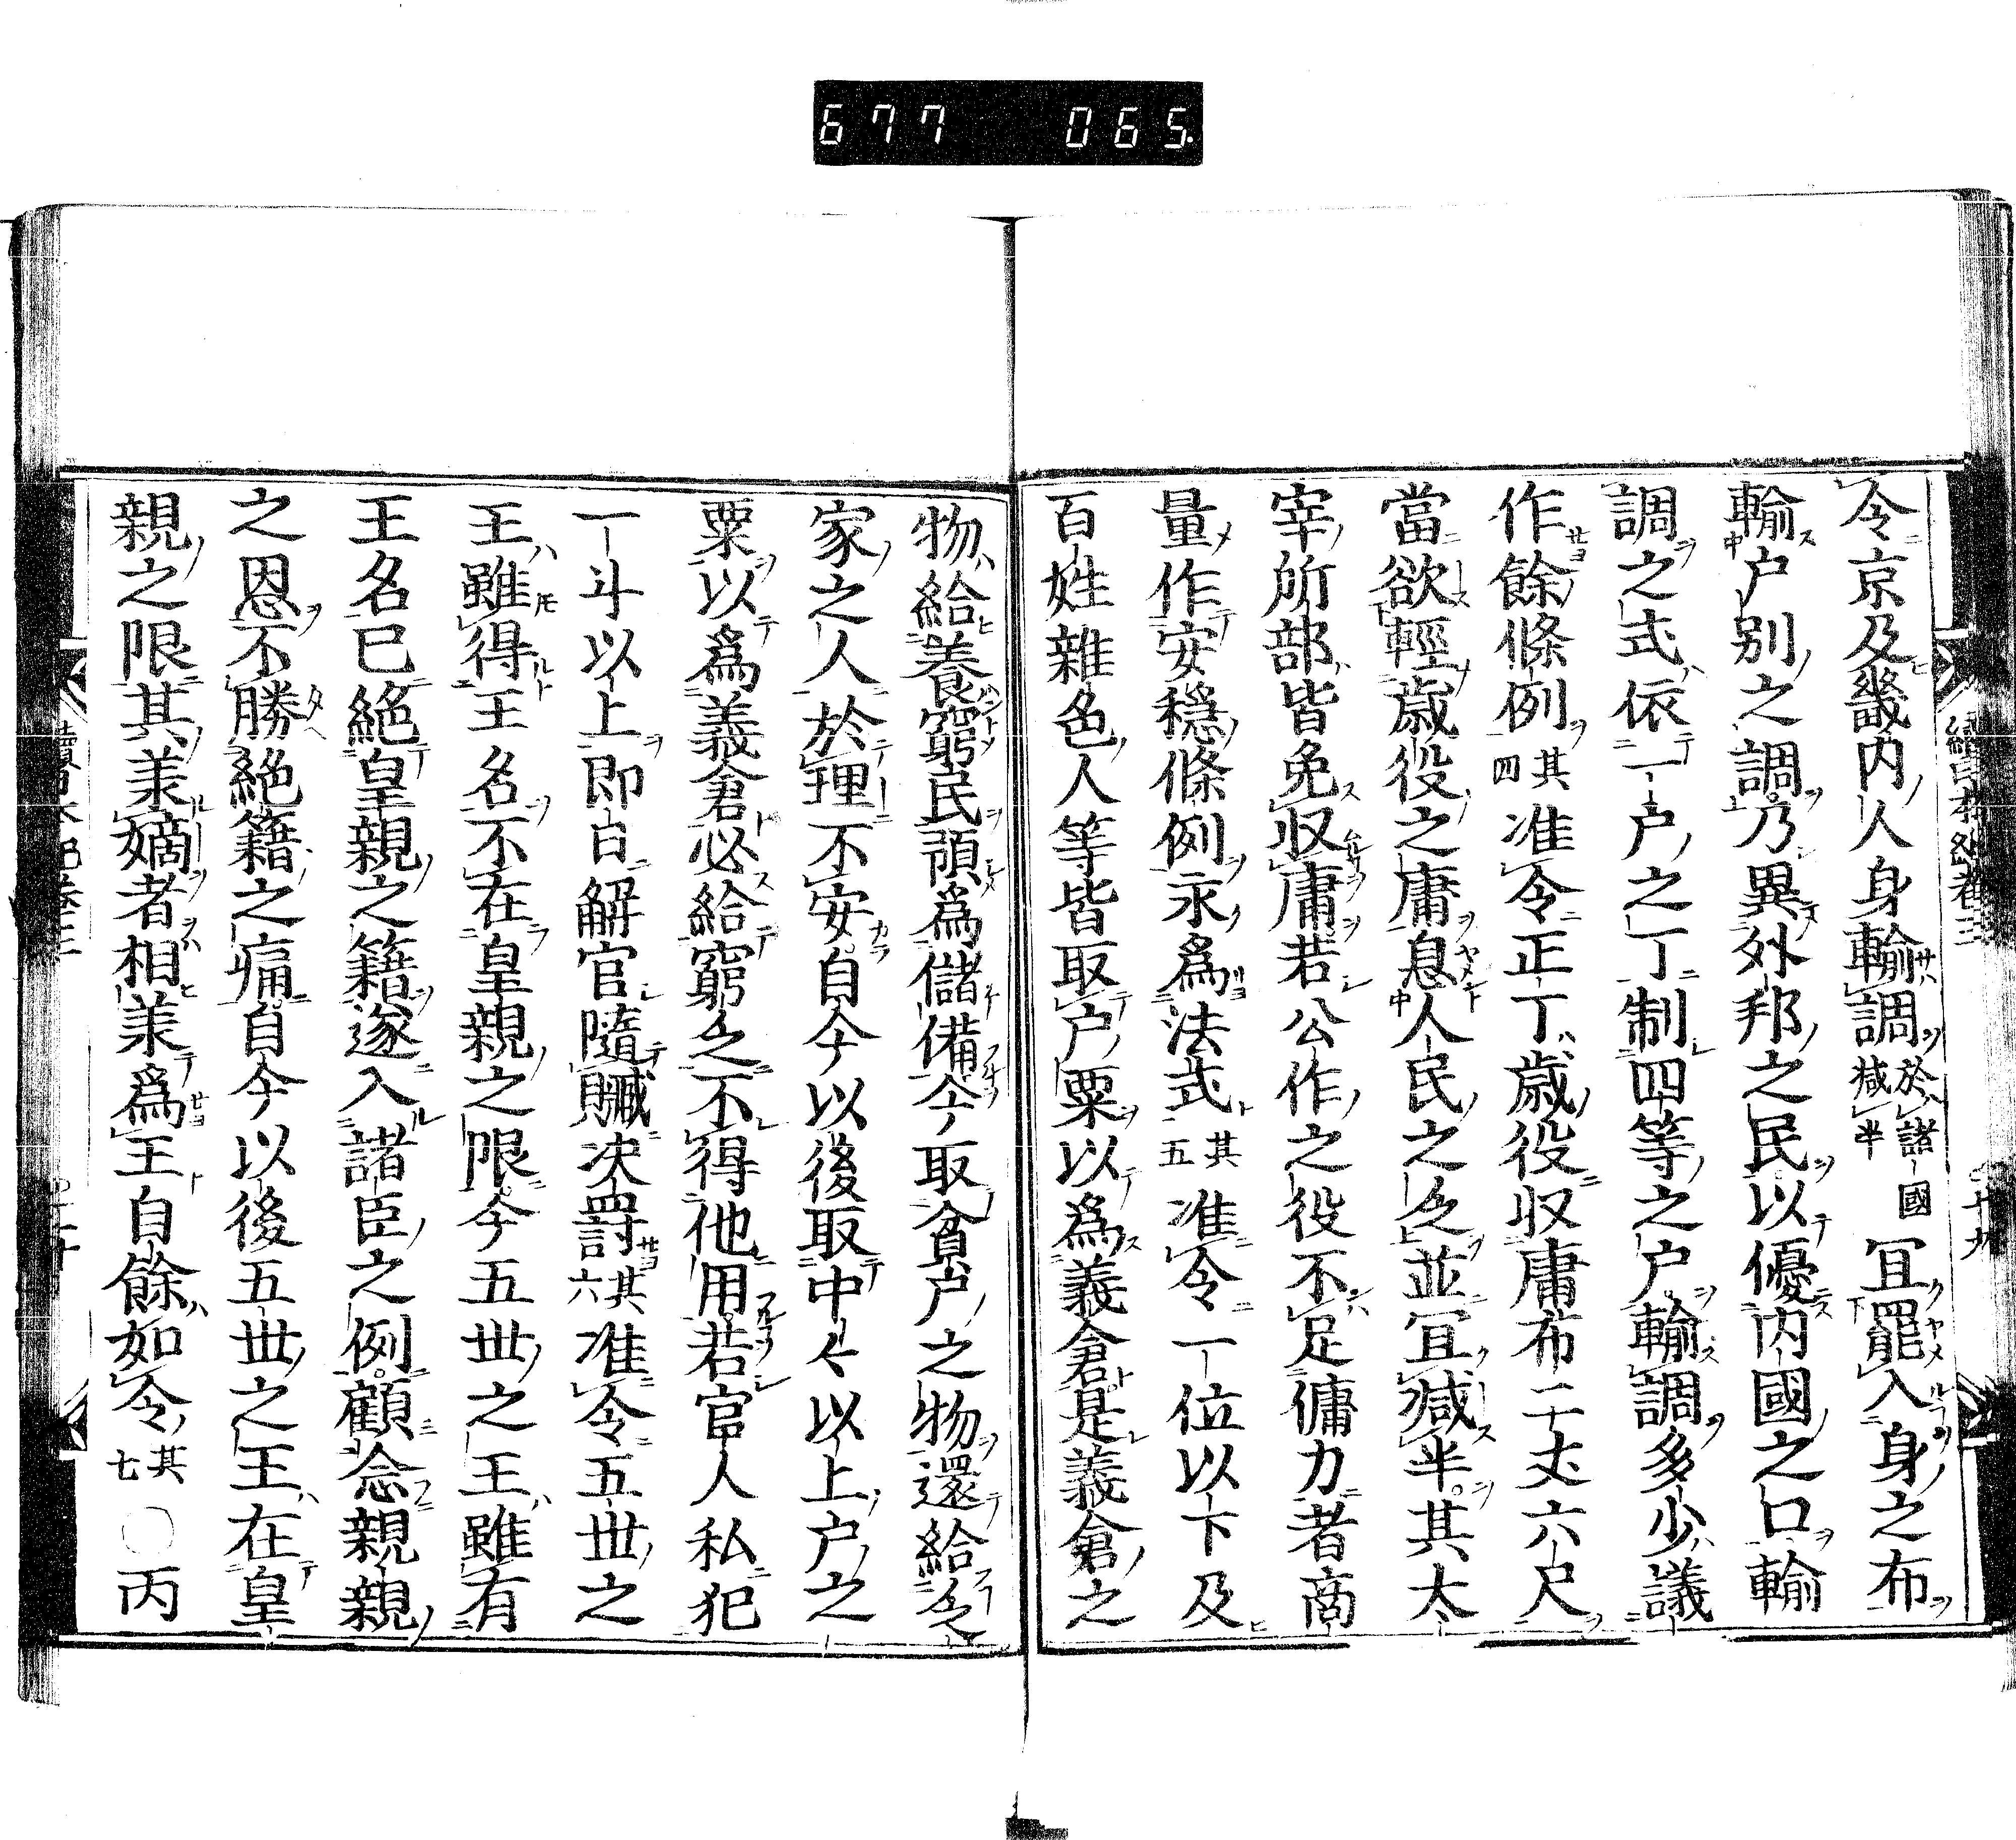 677 065
令京及畿内人身輸調於諸國減半宜罷人身之布
輸戸別之調乃異外邦之民以優内國之口輸
調之式依一戸之丁制四等之戸輸調多少議
作餘條例其四准令正丁歳役収庸布二丈六尺
當欲輕歳役之庸息人民之乏並宜減半其大
宰所部皆免収庸若公作之役不足傭力者商
量作安穏條例永爲法式其五准令一位以下及
百姓雜色人等皆取戸粟以爲義倉是義倉之
物給養窮民預爲儲備今取貧戸之物還給乏
家之人於理不安自今以後取中〻以上戸之
粟以爲義倉必給窮乏不得他用若官人私犯
一斗以上即日解官隨贓決罸其六准令五世之
王雖得王名不在皇親之限今五世之王雖有
王名已絶皇親之籍遂入諸臣之例顧念親親
之恩不勝絶籍之痛自今以後五世之王在皇
親之限其羕嫡者相羕爲王自餘如令其七○丙